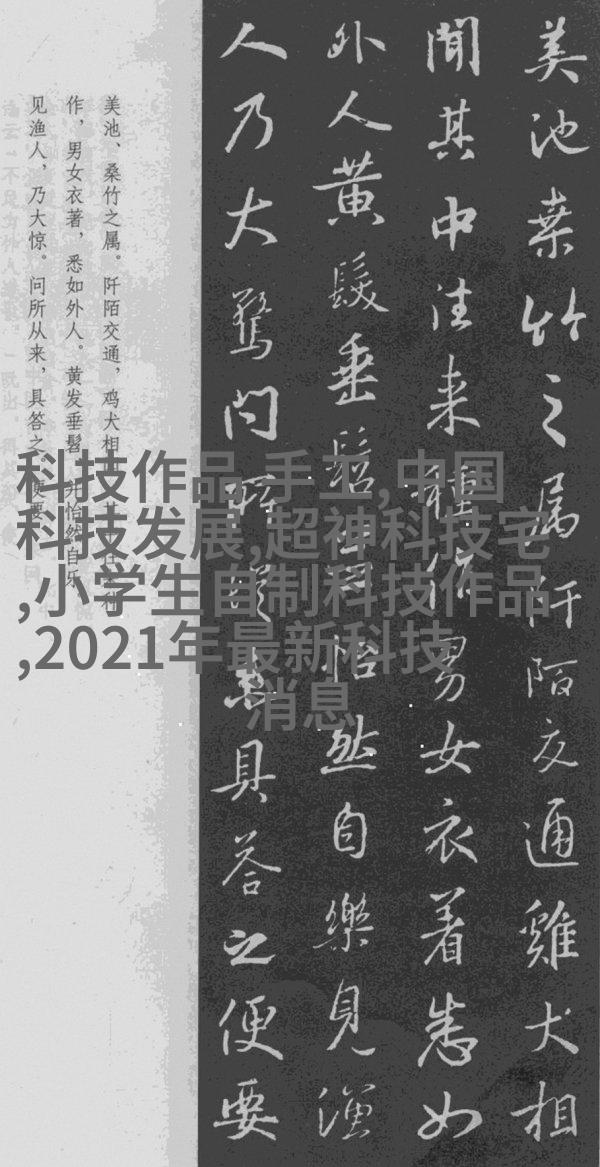 美池桒竹之属阡陌交通雞犬相
聞其中往来種作男女衣着悉如
外人黃髮垂髫怡然自樂見漁
人乃大驚問所從来具答之便要
美池、桑竹之属。阡陌交通，鸡犬相
作，男女衣著，悉如外人。黄发垂髫，并怡然自乐
见渔人，乃大惊。问所从来，具答之。便要
科技作品,手工,中国
科技发展,超神科技宅
,小学生自制科技作品
,2021年最新科技
消息